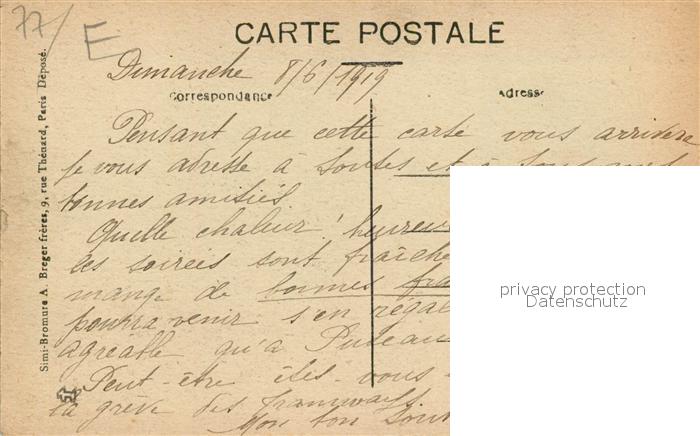 77/
E
CARTE POSTALE
Dimanche 8/6/1919
Correspondance
Adresse
Pensant que cette carte vous arrivera
je vous adresse à toutes et à tous mes
bonnes amitiés.
Quelle chaleur! heureu
les soirées sont fraîche
mange de bonnes fra
pourra venir s'en régal
agréable qu'à Puteau
Peut-être êtes-vous
la grève des tramways.
Mon bon souv
Simi-Bromure A. Breger frères, 9, rue Thénard, Paris Déposé.
privacy protection
Datenschutz